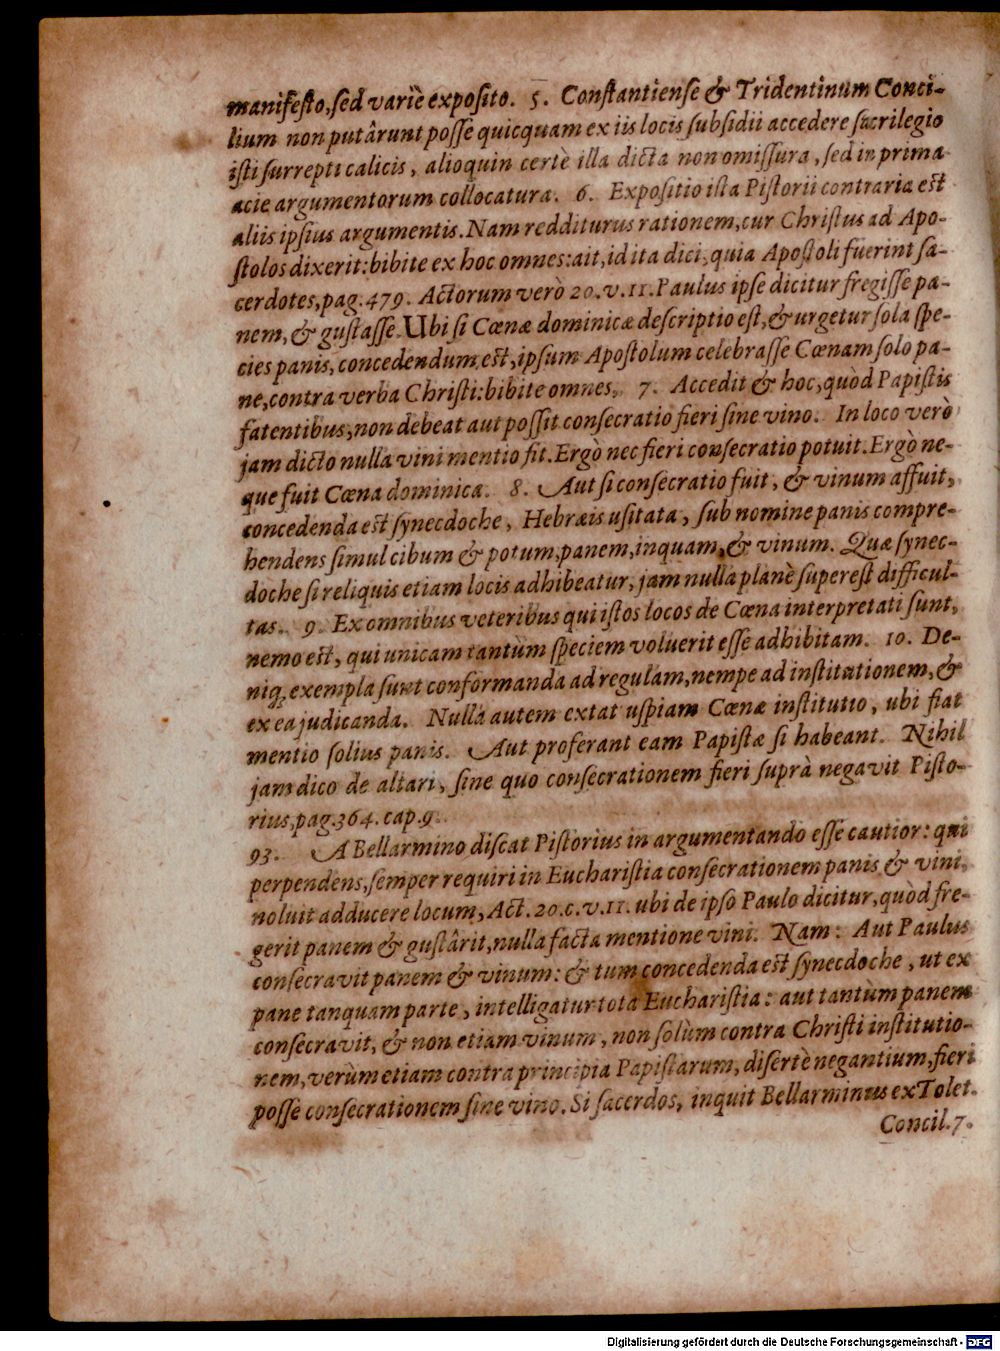 manifesto, sed variè exposito. 5. Constantiense & Tridentinum Conci-
lium non putârunt posse quicquam ex iis locis subsidii accedere sacrilegio
isti surrepti calicis, alioquin certè illa dicta non omissura, sed in prima
acie argumentorum collocatura. 6. Expositio ista Pistorii contraria est
aliis ipsius argumentis. Nam redditurus rationem, cur Christus ad Apo-
stolos dixerit: bibite ex hoc omnes: ait, id ita dici, quia Apostoli fuerint sa-
cerdotes, pag. 479. Actorum verò 20. v. 11. Paulus ipse dicitur fregisse pa-
nem, & gustasse. Ubi si Cœnæ dominicæ descriptio est, & urgetur sola spe-
cies panis, concedendum est, ipsum Apostolum celebrasse Cœnam solo pa-
ne, contra verba Christi: bibite omnes. 7. Accedit & hoc, quòd Papistis
fatentibus, non debeat aut possit consecratio fieri sine vino. In loco verò
jam dicto nulla vini mentio fit. Ergò nec fieri consecratio potuit. Ergò ne-
que fuit Cœna dominica. 8. Aut si consecratio fuit, & vinum affuit,
concedenda est synecdoche, Hebræis usitata, sub nomine panis compre-
hendens simul cibum & potum, panem, inquam, & vinum. Quæ synec-
doche si reliquis etiam locis adhibeatur, jam nulla planè superest difficul-
tas. 9. Ex omnibus veteribus qui istos locos de Cœna interpretati sunt,
nemo est, qui unicam tantùm speciem voluerit esse adhibitam. 10. De-
niq; exempla sunt conformanda ad regulam, nempe ad institutionem, &
ex ea judicanda. Nulla autem extat uspiam Cœnæ institutio, ubi fiat
mentio solius panis. Aut proferant eam Papistæ si habeant. Nihil
jam dico de altari, sine quo consecrationem fieri suprà negavit Pisto-
rius, pag. 364. cap. 9.
93. A Bellarmino discat Pistorius in argumentando esse cautior: qui
perpendens, semper requiri in Eucharistia consecrationem panis & vini,
noluit adducere locum, Act. 20. c. v. 11. ubi de ipso Paulo dicitur, quòd fre-
gerit panem & gustârit, nulla facta mentione vini. Nam: Aut Paulus
consecravit panem & vinum: & tum concedenda est synecdoche, ut ex
pane tanquam parte, intelligatur tota Eucharistia: aut tantùm panem
consecravit, & non etiam vinum, non solùm contra Christi institutio-
nem, verùm etiam contra principia Papistarum, disertè negantium, fieri
posse consecrationem sine vino. Si sacerdos, inquit Bellarminus ex Tolet.
Concil. 7.
Digitalisierung gefördert durch die Deutsche Forschungsgemeinschaft - DFG